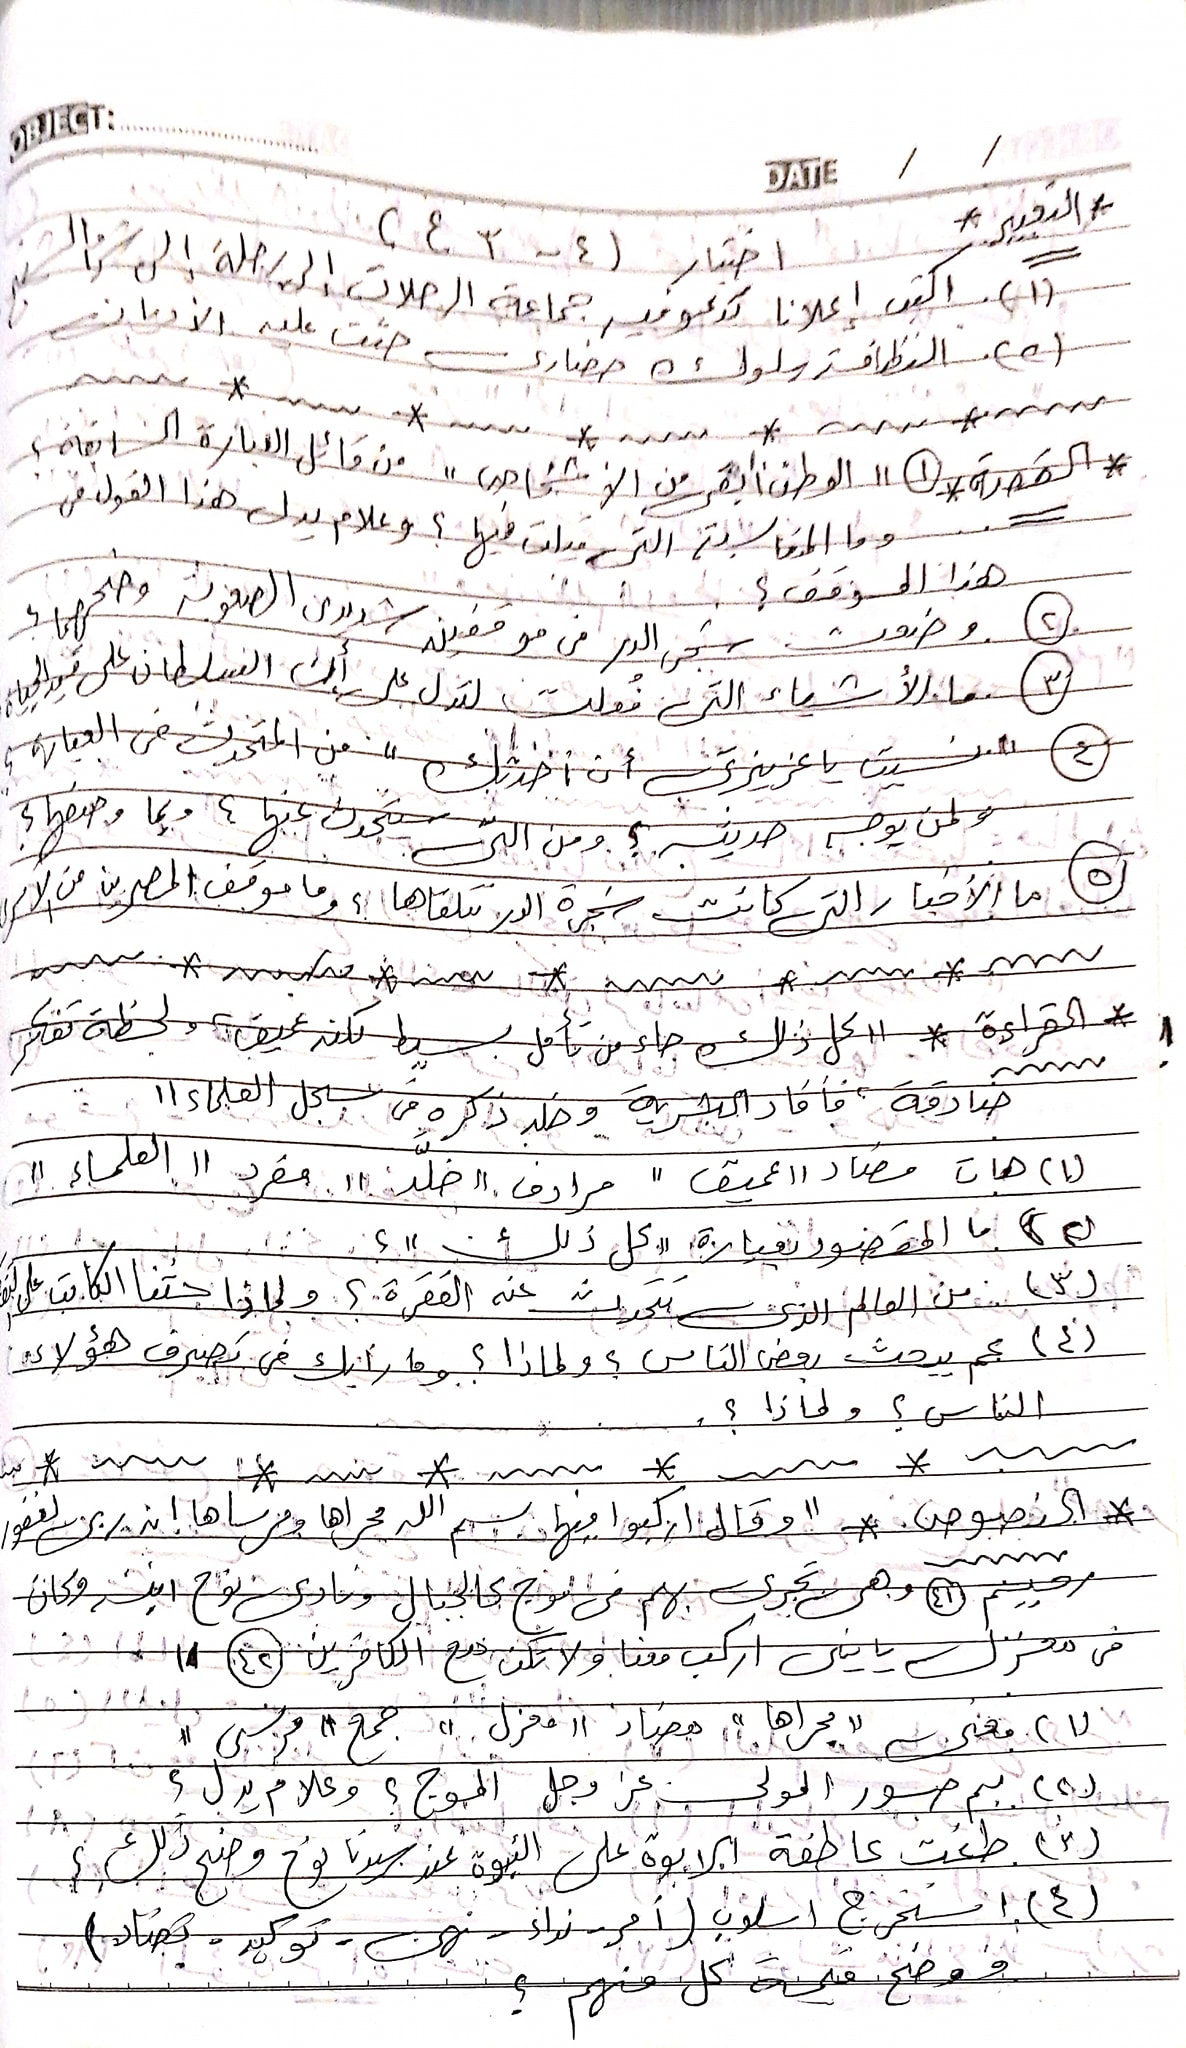 OBJECT:
DATE / /
* التعبير * اختبار (٤ - ٣ ع ٢)
(١). اكتب إعلانا تدعو فيه جماعة الرحلات إلى رحلة إلى شرم الشيخ
(٢). النظافة سلوك حضارى حثت عليه الأديان
* القصة * ① "الوطن أبقى من الأشخاص" من قائل العبارة السابقة ؟
وما المناسبة التى قيلت فيها ؟ وعلام يدل هذا القول فى
هذا الموقف ؟
② وضعت شجر الدر فى موقفين شديدى الصعوبة وضحهما ؟
③ ما الأشياء التى فُعلت لتدل على أن السلطان على قيد الحياة ؟
④ "نسيت يا عزيزتى أن أحدثك" من المتحدث فى العبارة ؟
ولمن يوجه حديثه ؟ ومن التى سيتحدث عنها ؟ وبما وصفها ؟
⑤ ما الأخبار التى كانت شجرة الدر تتلقاها ؟ وما موقف المصريين من
* القراءة * "كل ذلك جاء من تأمل بسيط لكنه عميق، ولحظة تفكر
صادقة، فأفاد البشرية وخلد ذكره فى سجل العلماء"
(١) هات مضاد "عميق" مرادف "خلَّد" مفرد "العلماء"
(٢) ما المقصود بعبارة "كل ذلك" ؟
(٣) من العالم الذى تتحدث عنه الفقرة ؟ ولماذا حثنا الكاتب على
(٤) عم يبحث بعض الناس ؟ ولماذا ؟ وما رأيك فى تصرف هؤلاء
الناس ؟ ولماذا ؟
* النصوص * "وقال اركبوا فيها بسم الله مجراها ومرساها إن ربى لغفور
رحيم (٤١) وهى تجرى بهم فى موج كالجبال ونادى نوح ابنه وكان
فى معزل يا بنى اركب معنا ولا تكن مع الكافرين (٤٢)"
(١) معنى "مجراها" مضاد "معزل" جمع "مرسى"
(٢) بم صور المولى عز وجل الموج ؟ وعلام يدل ؟
(٣) طغت عاطفة الابوة على النبوة عند سيدنا نوح وضح ذلك ؟
(٤) استخرج اسلوب (أمر - نداء - نهى - توكيد - تضاد)
ووضح قيمة كل منهم ؟